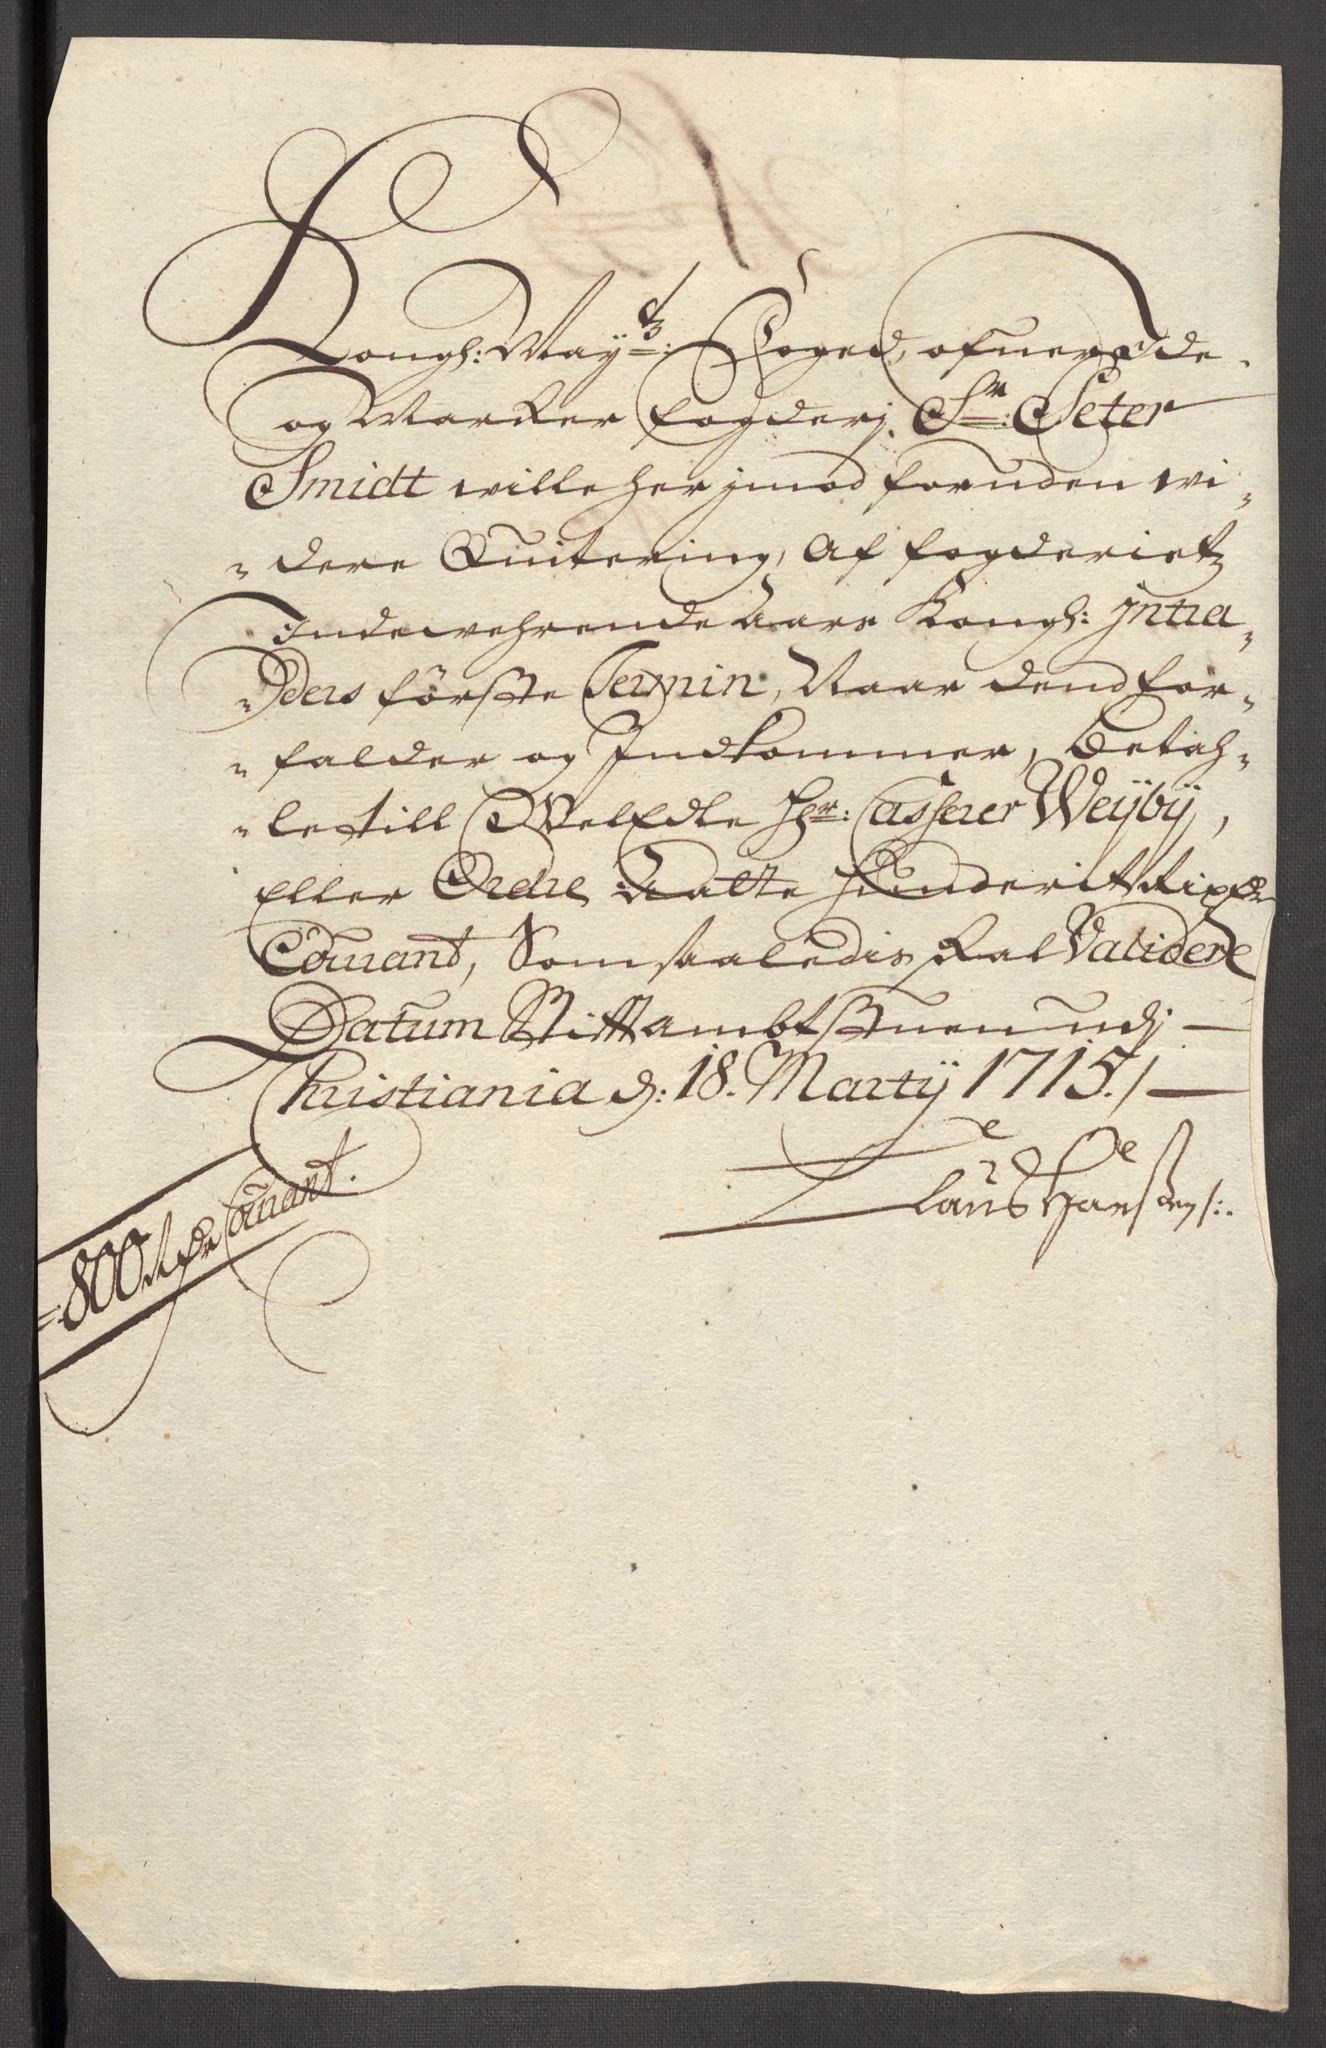 Kongh: Mayts: Foged ofuer Jde
og Marker fogderj Sr: Peter
Smidt wille her jmod foruden wi-
-dere Quitering, Af fogderietz
Indewehrende Aars Kongh: Intra-
-ders förste Termin, Naar dend for-
-falder og Indkommer, Betah-
-le till WelEdle Hr: Casserer Weÿbÿ,
Eller Ordre Aatte Hundert Rixdr
Courant, Som saaledis skal Validere
Datum Stiftambtstuen udj
Christiania d: 18. Martij 1715./
Claus Hansen
=800 Rdr Courant.